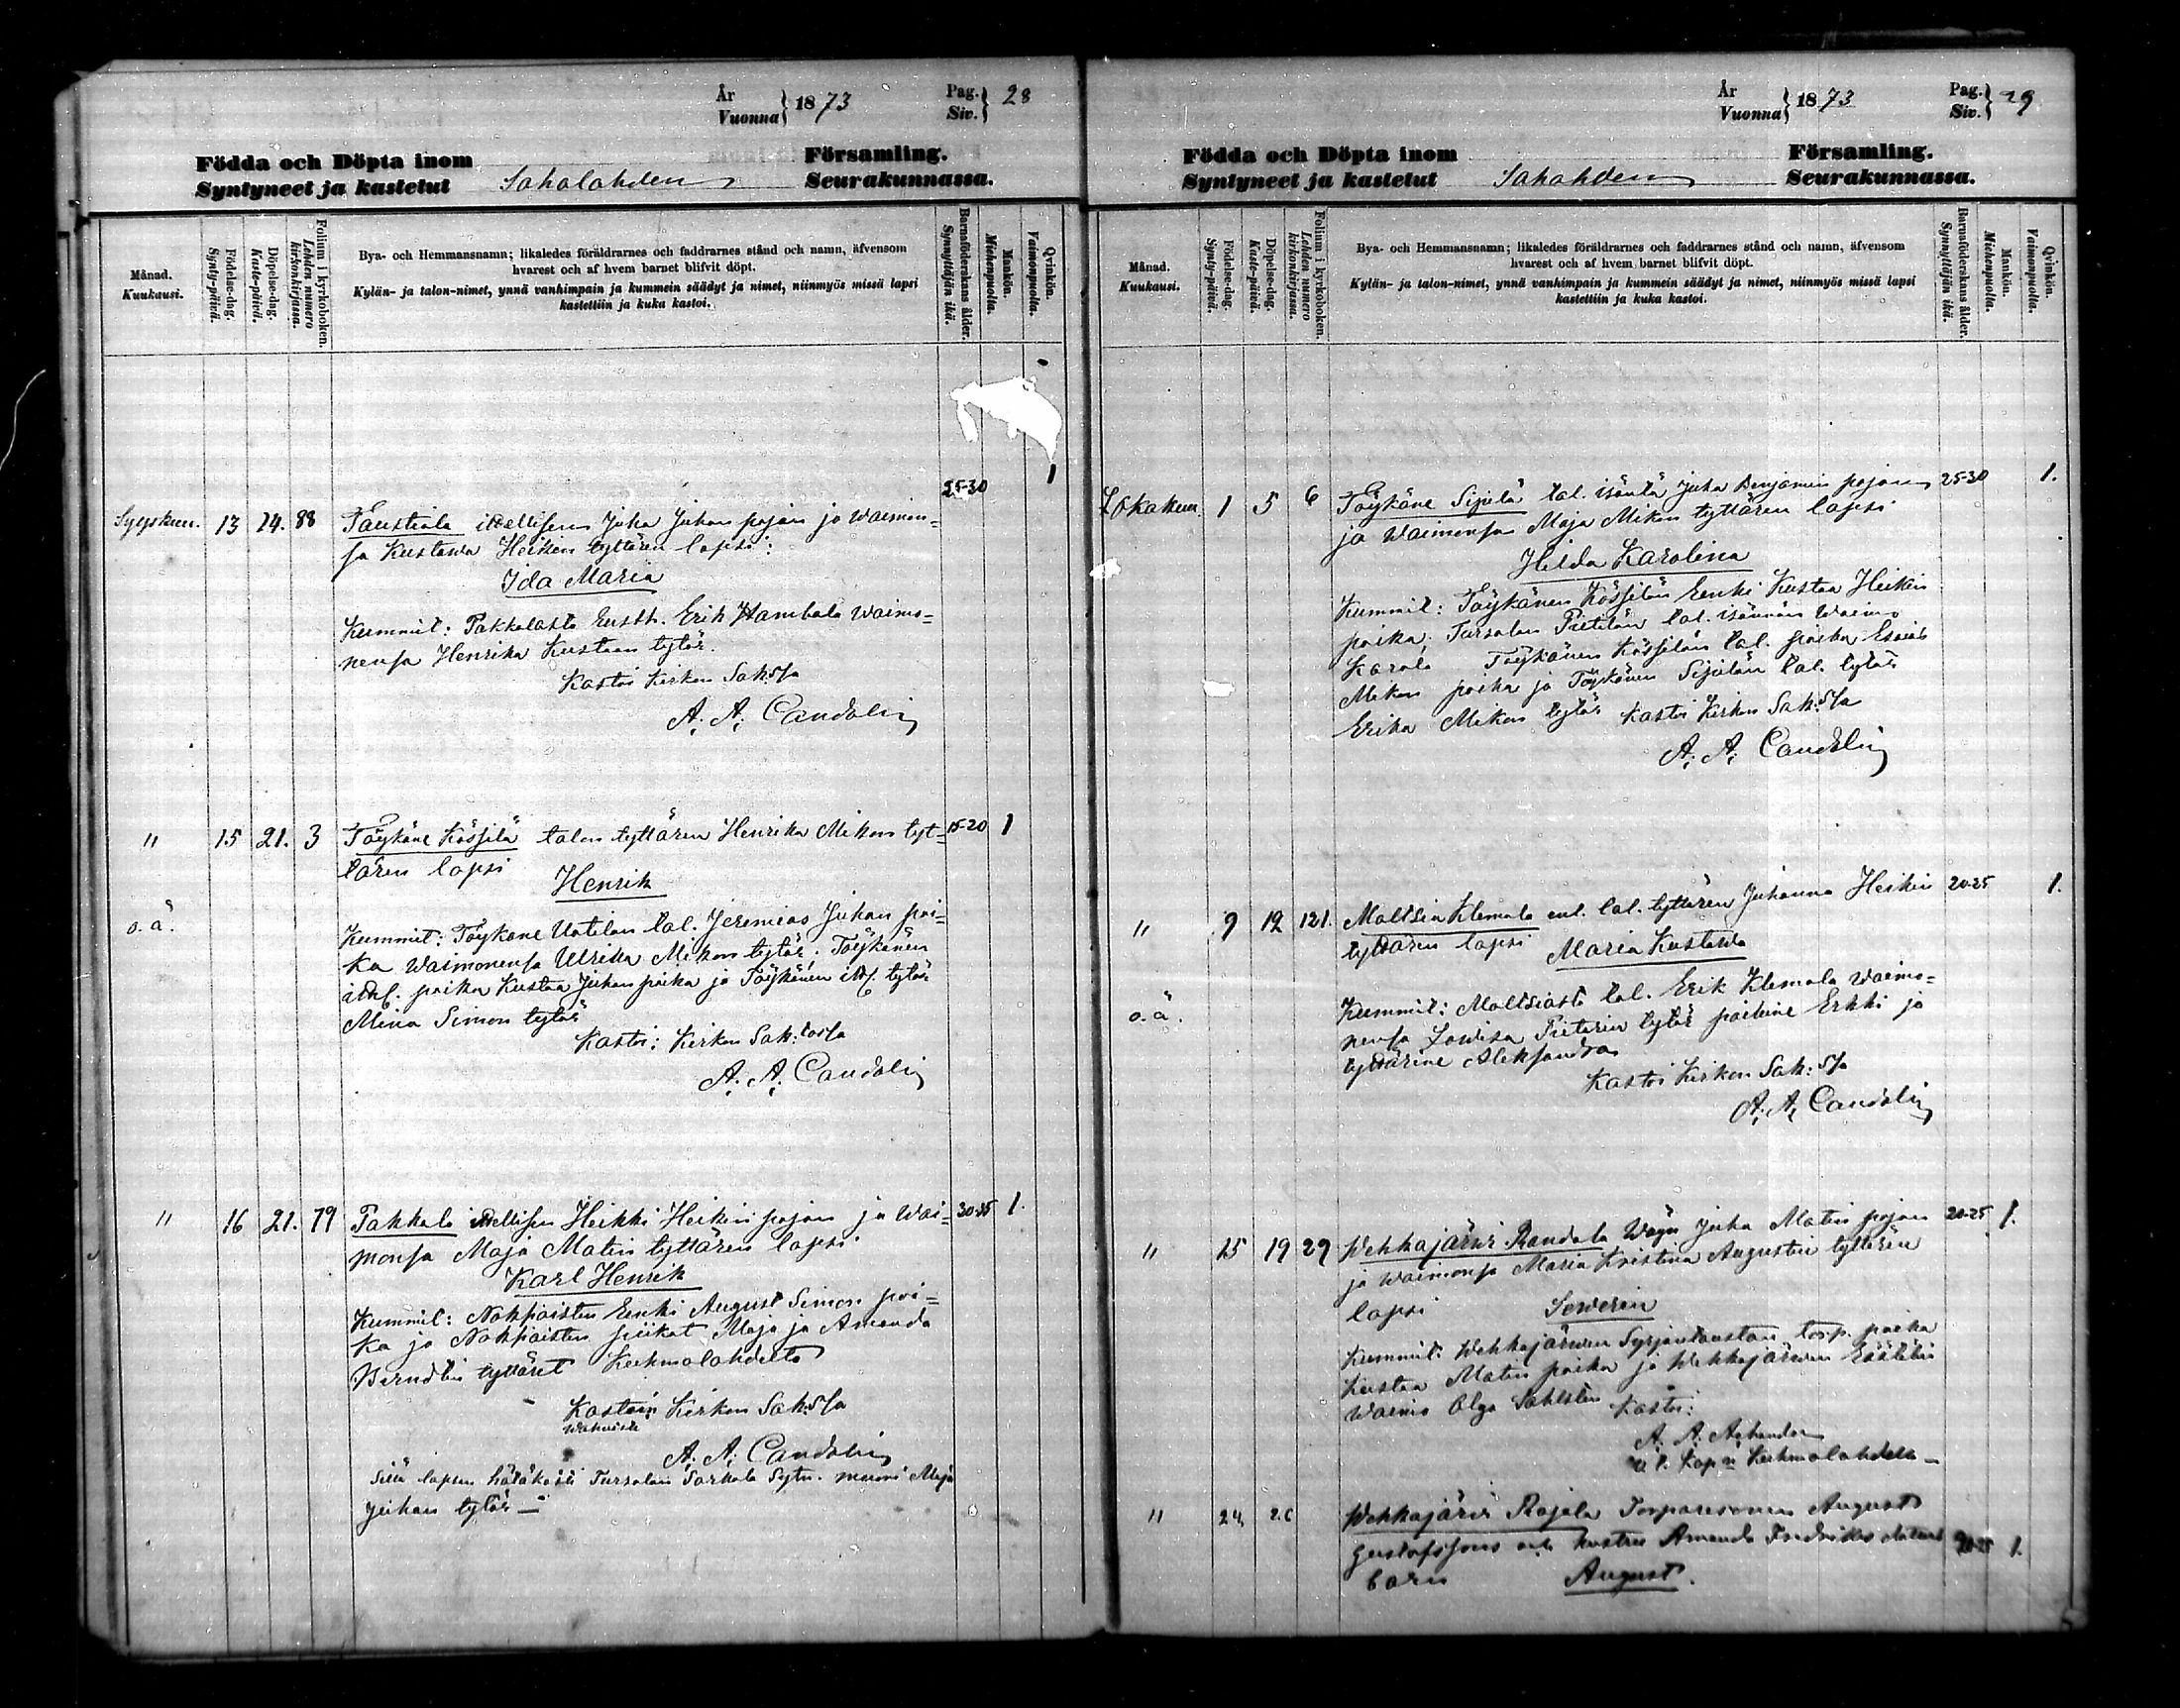 År
Vuonna } 1873
Pag.
Siv. } 28
Födda och Döpta inom Församling.
Syntyneet ja kastetut Sahalahden Seurakunnassa.
Månad.
Kuukausi.
Födelse-dag.
Synty-päivä.
Döpelse-dag.
Kaste-päivä.
Folium i kyrkoboken.
Lehden numero kirkonkirjassa.
Bya- och Hemmansnamn; likaledes föräldrarnes och faddrarnes stånd och namn, äfvensom
hvarest och af hvem barnet blifvit döpt.
Kylän- ja talon-nimet, ynnä vanhimpain ja kummein säädyt ja nimet, niinmyös missä lapsi
kastettiin ja kuka kastoi.
Barnaföderskans ålder.
Synnyttäjän ikä.
Mankön.
Miehenpuolta.
Qvinkön.
Vaimonpuolta.
25-30 1
Syyskuu. 13 24. 88 Taustiala itellisen Juha Juhan pojan ja waimon=
sa Kustawa Heikin tyttären lapsi:
Ida Maria
Kummit: Pakkalasta Erik Hambala waimo=
nensa Henrika Kustaan tytär.
Kastoi Kirkon Sak:ssa
A. A. Candolin
" 15 21. 3 Töykäne Kössilä talon tyttären Henrika Mikon tyt= 15-20 1
tären lapsi
Henrik
o. ä. Kummit: Töykäne Uotilan tal. Jeremias Juhan poi=
ka waimonensa Ulrika Mikon tytär; Töykänen
itell. poika Kustaa Juhan poika ja Töykänen itl. tytär
Miina Simon tytär
Kastoi: Kirkon Sak:tossa
A. A. Candolin
" 16 21. 79 Pakkala itellisen Heikki Heikin pojan ja wai= 30-35 1.
monsa Maja Matin tyttären lapsi.
Karl Henrik
Kummit: Nakpaisten Renki August Simon poi=
ka ja Nakpaisten piikat Maja ja Amanda
Berndtin tyttäret Kuhmalahdelta
Kastoi Kirkon Sak:ssa
wahwisti
A. A. Candolin
Sillä lapsen hätäkasti Tursolan Sarkola Sytn. muori Maja
Juhan tytär —
År
Vuonna } 1873
Pag.
Siv. } 29
Födda och Döpta inom Församling.
Syntyneet ja kastetut Sahahden Seurakunnassa.
Månad.
Kuukausi.
Födelse-dag.
Synty-päivä.
Döpelse-dag.
Kaste-päivä.
Folium i kyrkoboken.
Lehden numero kirkonkirjassa.
Bya- och Hemmansnamn; likaledes föräldrarnes och faddrarnes stånd och namn, äfvensom
hvarest och af hvem barnet blifvit döpt.
Kylän- ja talon-nimet, ynnä vanhimpain ja kummein säädyt ja nimet, niinmyös missä lapsi
kastettiin ja kuka kastoi.
Barnaföderskans ålder.
Synnyttäjän ikä.
Mankön.
Miehenpuolta.
Qvinkön.
Vaimonpuolta.
Lokakuu 1 5 6 Töykäne Sipilä tal. isäntä Juha Benjamin pojan 25-30 1.
ja waimonsa Maja Mikon tyttären lapsi
Hilda Karolina
Kummit: Töykänen Kössilän Renki Kustaa Heikin
poika; Tursolan Pietilän tal. isännän waimo
Karola Töykänen Kössilän tal. poika Esaias
Mikon poika ja Töykänen Sipilän tal. tytär
Erika Mikon tytär Kastoi Kirkon Sak:ssa
A. A. Candolin
" 9 12 121. Moltsia Klemola ent. tal. tyttären Juhanna Heikin 20-25 1.
tyttären lapsi Maria Kustawa
o. ä. Kummit: Moltsiasta tal. Erik Klemola waimo=
nensa Lowisa Pieterin tytär poikine Erkki ja
tyttärine Aleksandra
Kastoi Kirkon Sak:ssa
A. A. Candolin
" 15 19 29 Wehkajärwi Randala Wäyn Juha Matin pojan 20-25 1.
ja waimonsa Maria Kristina Augustin tyttären
lapsi Sewerin
Kummit: Wehkajärwen Syrjäntaustan torp. poika
Kustaa Matin poika ja Wehkajärwen Räätälin
waimo Olga Sahlsten Kastoi:
A. A.
Kap:n Kuhmalahdella —
" 24. 26 Wehkajärwi Rajala Torparesonen August
Gustafssons och hustrus Amanda 20-25 1.
barn August.